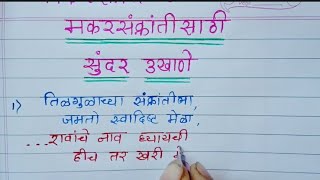 मकरसंक्रांतीसाठी
सुंदर उखाणे
१) तिळगुळाच्या संक्रांतीला,
जमतो स्वादिष्ट मेळा,
...रावांचे नाव घ्यायची
हीच तर खरी